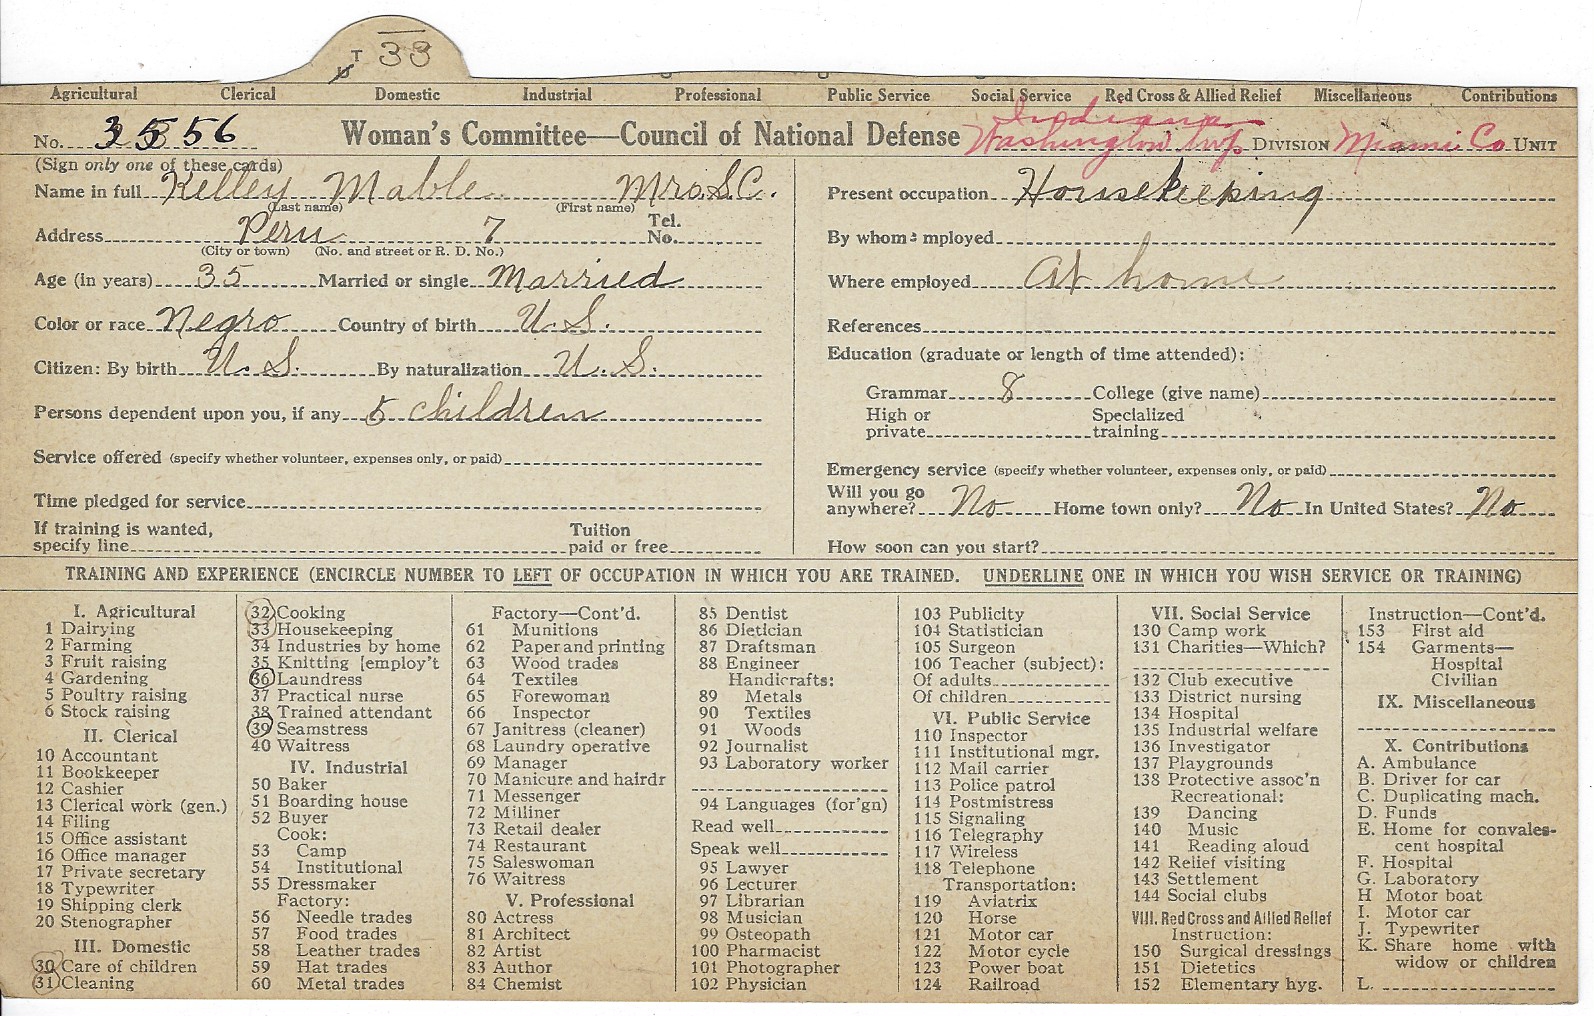 T 33
Agricultural Clerical Domestic Industrial Professional Public Service Social Service Red Cross & Allied Relief Miscellaneous Contributions
No. 3556 Woman's Committee—Council of National Defense Indiana Washington Twp. DIVISION Miami Co UNIT
(Sign only one of these cards)
Name in full Kelley Mable Mrs. S.C.
(Last name) (First name)
Address Peru 7 Tel. No.
(City or town) (No. and street or R. D. No.)
Age (in years) 35 Married or single Married
Color or race Negro Country of birth U.S.
Citizen: By birth U.S. By naturalization U.S.
Persons dependent upon you, if any 5 children
Service offered (specify whether volunteer, expenses only, or paid)
Time pledged for service
If training is wanted, specify line Tuition paid or free
Present occupation Housekeeping
By whom employed
Where employed At home
References
Education (graduate or length of time attended):
Grammar 8 College (give name)
High or private Specialized training
Emergency service (specify whether volunteer, expenses only, or paid)
Will you go anywhere? No Home town only? No In United States? No
How soon can you start?
TRAINING AND EXPERIENCE (ENCIRCLE NUMBER TO LEFT OF OCCUPATION IN WHICH YOU ARE TRAINED. UNDERLINE ONE IN WHICH YOU WISH SERVICE OR TRAINING)
I. Agricultural
1 Dairying
2 Farming
3 Fruit raising
4 Gardening
5 Poultry raising
6 Stock raising
II. Clerical
10 Accountant
11 Bookkeeper
12 Cashier
13 Clerical work (gen.)
14 Filing
15 Office assistant
16 Office manager
17 Private secretary
18 Typewriter
19 Shipping clerk
20 Stenographer
III. Domestic
30 Care of children
31 Cleaning
32 Cooking
33 Housekeeping
34 Industries by home
35 Knitting [employ't
36 Laundress
37 Practical nurse
38 Trained attendant
39 Seamstress
40 Waitress
IV. Industrial
50 Baker
51 Boarding house
52 Buyer
Cook:
53 Camp
54 Institutional
55 Dressmaker
Factory:
56 Needle trades
57 Food trades
58 Leather trades
59 Hat trades
60 Metal trades
Factory—Cont'd.
61 Munitions
62 Paper and printing
63 Wood trades
64 Textiles
65 Forewoman
66 Inspector
67 Janitress (cleaner)
68 Laundry operative
69 Manager
70 Manicure and hairdr
71 Messenger
72 Milliner
73 Retail dealer
74 Restaurant
75 Saleswoman
76 Waitress
V. Professional
80 Actress
81 Architect
82 Artist
83 Author
84 Chemist
85 Dentist
86 Dietician
87 Draftsman
88 Engineer
Handicrafts:
89 Metals
90 Textiles
91 Woods
92 Journalist
93 Laboratory worker
94 Languages (for'gn)
Read well
Speak well
95 Lawyer
96 Lecturer
97 Librarian
98 Musician
99 Osteopath
100 Pharmacist
101 Photographer
102 Physician
103 Publicity
104 Statistician
105 Surgeon
106 Teacher (subject):
Of adults
Of children
VI. Public Service
110 Inspector
111 Institutional mgr.
112 Mail carrier
113 Police patrol
114 Postmistress
115 Signaling
116 Telegraphy
117 Wireless
118 Telephone
Transportation:
119 Aviatrix
120 Horse
121 Motor car
122 Motor cycle
123 Power boat
124 Railroad
VII. Social Service
130 Camp work
131 Charities—Which?
132 Club executive
133 District nursing
134 Hospital
135 Industrial welfare
136 Investigator
137 Playgrounds
138 Protective assoc'n
Recreational:
139 Dancing
140 Music
141 Reading aloud
142 Relief visiting
143 Settlement
144 Social clubs
VIII. Red Cross and Allied Relief
Instruction:
150 Surgical dressings
151 Dietetics
152 Elementary hyg.
Instruction—Cont'd.
153 First aid
154 Garments—
Hospital
Civilian
IX. Miscellaneous
X. Contributions
A. Ambulance
B. Driver for car
C. Duplicating mach.
D. Funds
E. Home for convales-
cent hospital
F. Hospital
G. Laboratory
H Motor boat
I. Motor car
J. Typewriter
K. Share home with
widow or children
L.